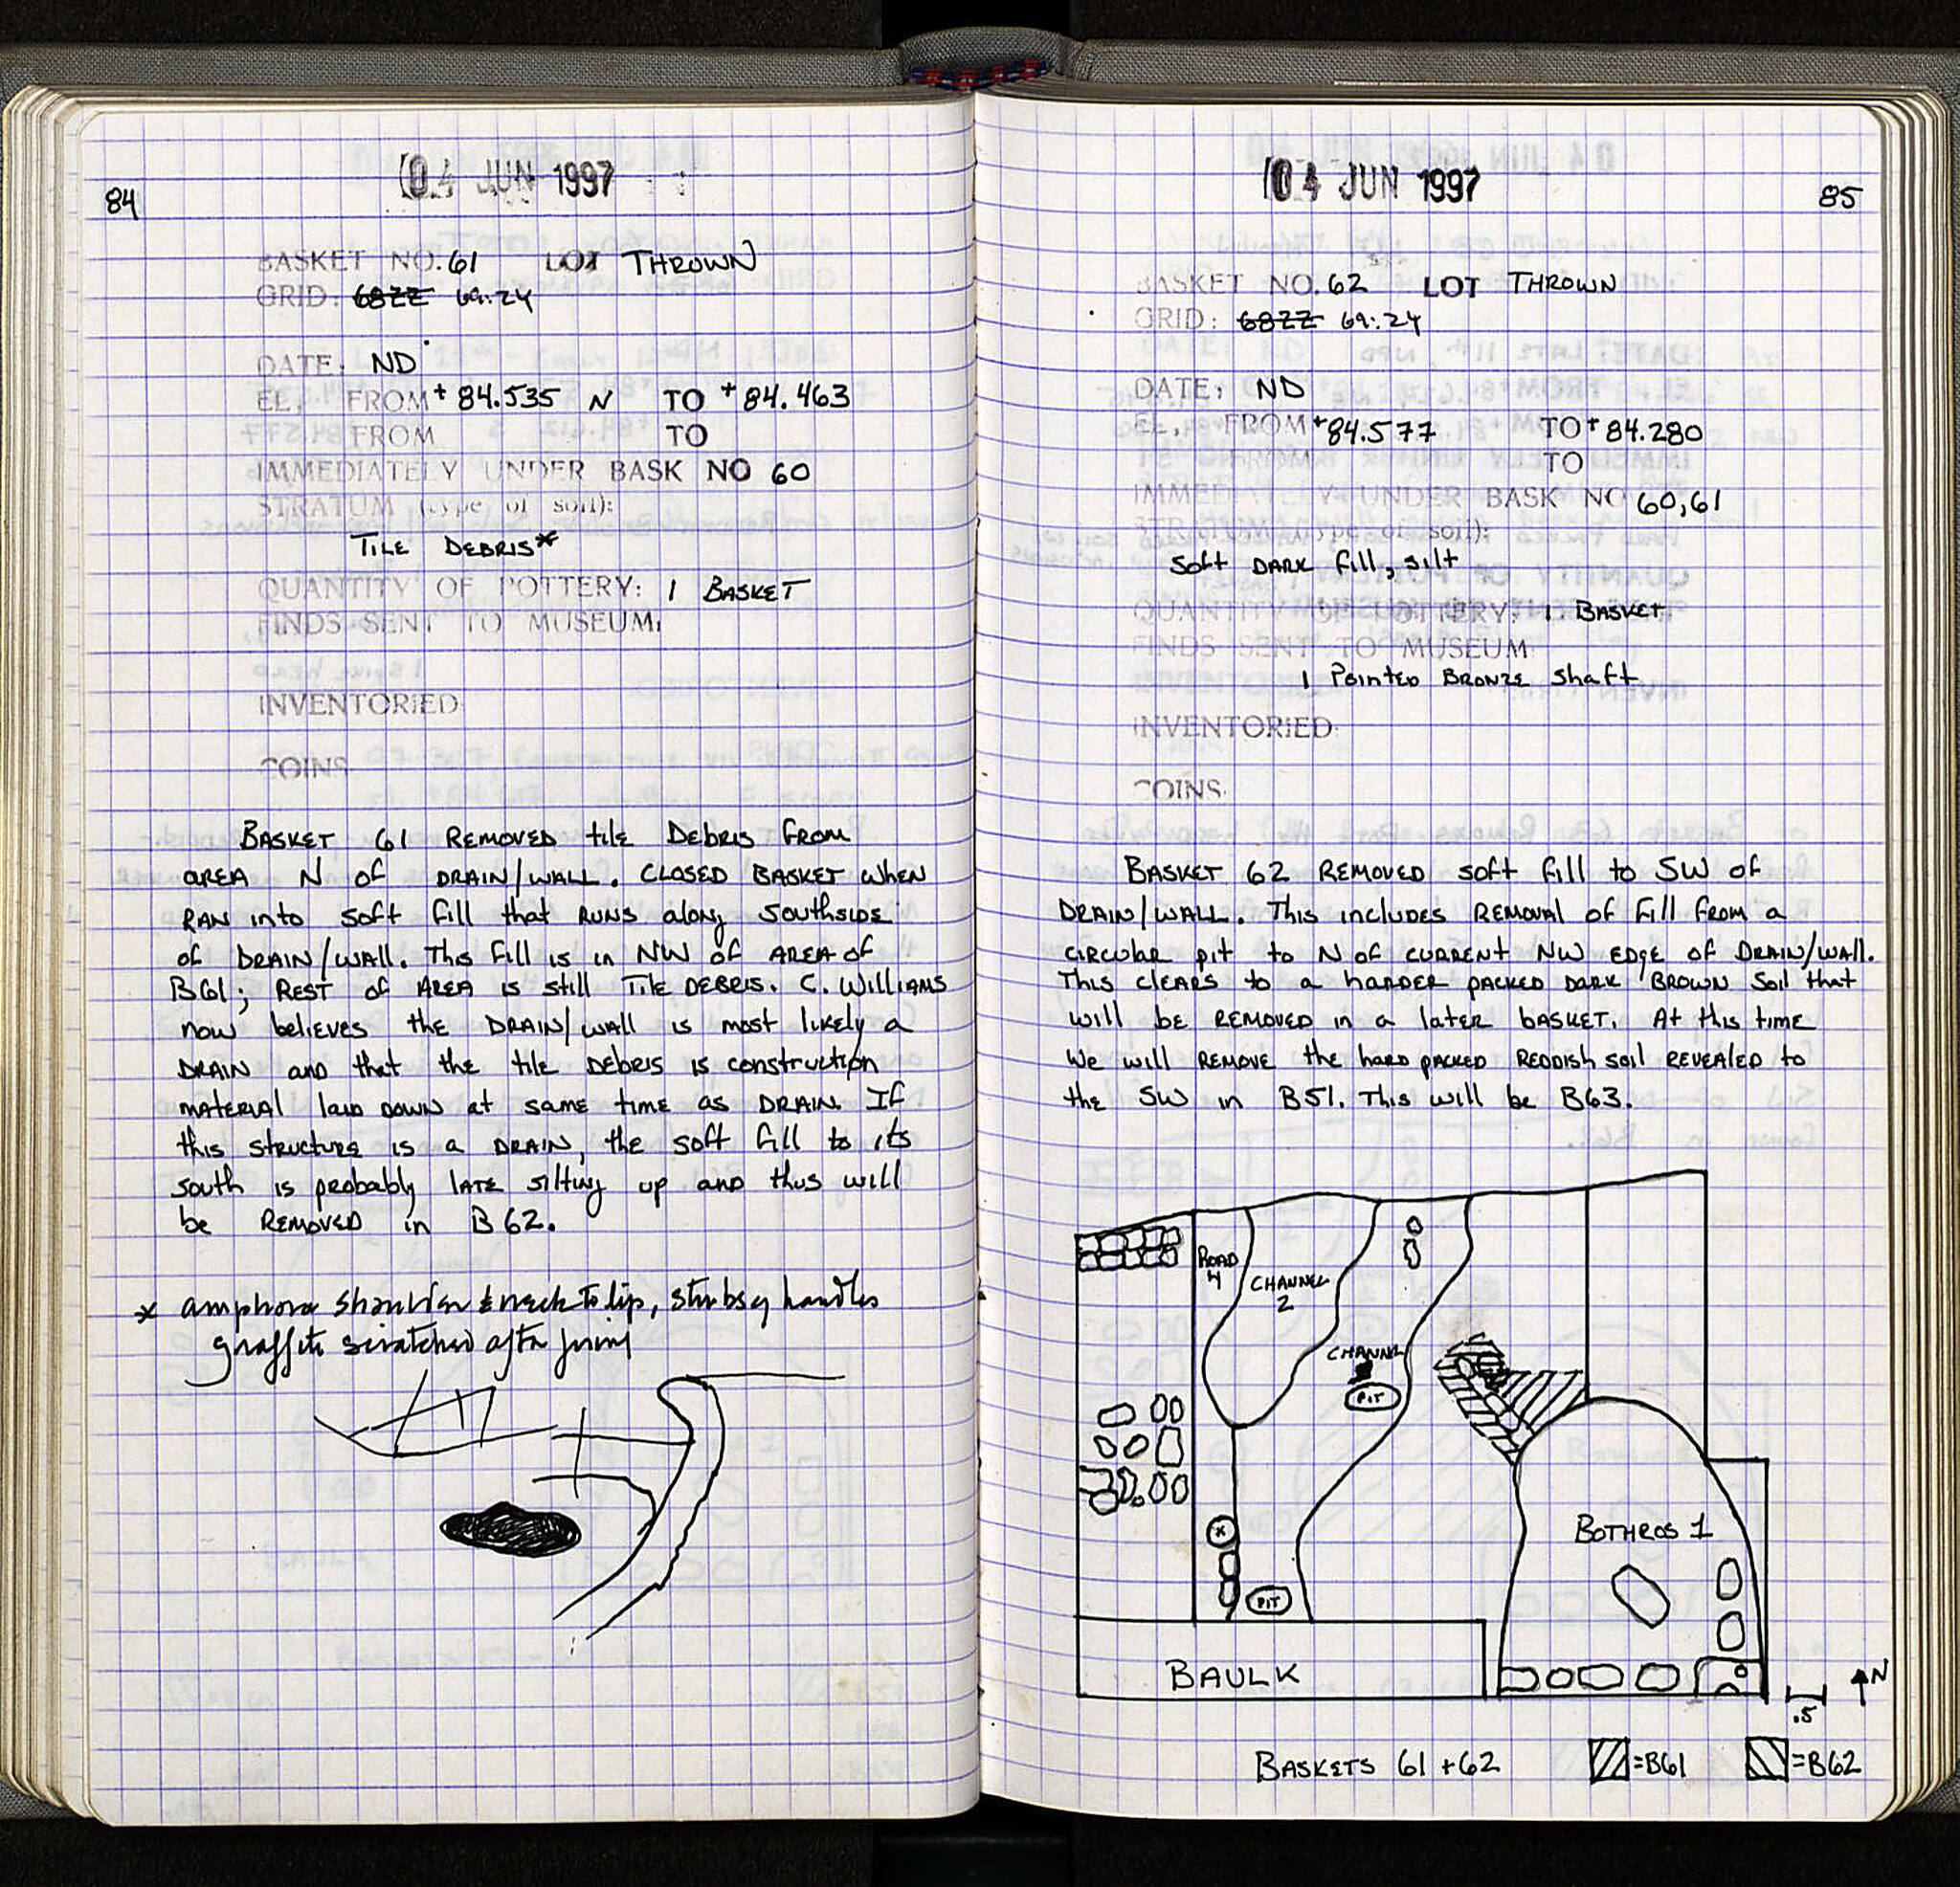 84
04 JUN 1997
BASKET NO. 61 LOT THROWN
GRID: 68ZZ 69:24
DATE: ND
EL, FROM +84.535 N TO +84.463
FROM TO
IMMEDIATELY UNDER BASK NO 60
STRATUM (type of soil):
TILE DEBRIS*
QUANTITY OF POTTERY: 1 BASKET
FINDS SENT TO MUSEUM:
INVENTORIED
COINS
BASKET 61 REMOVED tile DEBRIS from
AREA N of DRAIN/WALL. CLOSED BASKET when
RAN into soft fill that RUNS along southside
of DRAIN/WALL. This fill is in NW of AREA of
B61; REST of AREA is still TILE DEBRIS. C. Williams
now believes the DRAIN/WALL is most likely a
DRAIN and that the tile DEBRIS is construction
MATERIAL laid down at same time as DRAIN. If
this structure is a DRAIN, the soft fill to its
south is probably LATE silting up and thus will
be REMOVED in B62.
* amphora shoulder & neck to lip, stubs of handles
graffito scratched after firing
04 JUN 1997
85
BASKET NO. 62 LOT THROWN
GRID: 68ZZ 69:24
DATE: ND
EL, FROM +84.577 TO +84.280
TO
IMMEDIATELY UNDER BASK NO 60,61
STRATUM (type of soil):
Soft DARK fill, silt
QUANTITY OF POTTERY: 1 BASKET
FINDS SENT TO MUSEUM
1 Pointed BRONZE shaft
INVENTORIED
COINS
BASKET 62 REMOVED soft fill to SW of
DRAIN/WALL. This includes REMOVAL of fill from a
circular pit to N of current NW EDGE of DRAIN/WALL.
This clears to a harder packed DARK BROWN soil that
will be REMOVED in a later BASKET. At this time
we will REMOVE the hard packed REDDISH soil REVEALED to
the SW in B51. This will be B63.
ROAD
4
CHANNEL
2
CHANNEL
PIT
BOTHROS 1
x
PIT
BAULK
N
.5
BASKETS 61 + 62 =B61 =B62